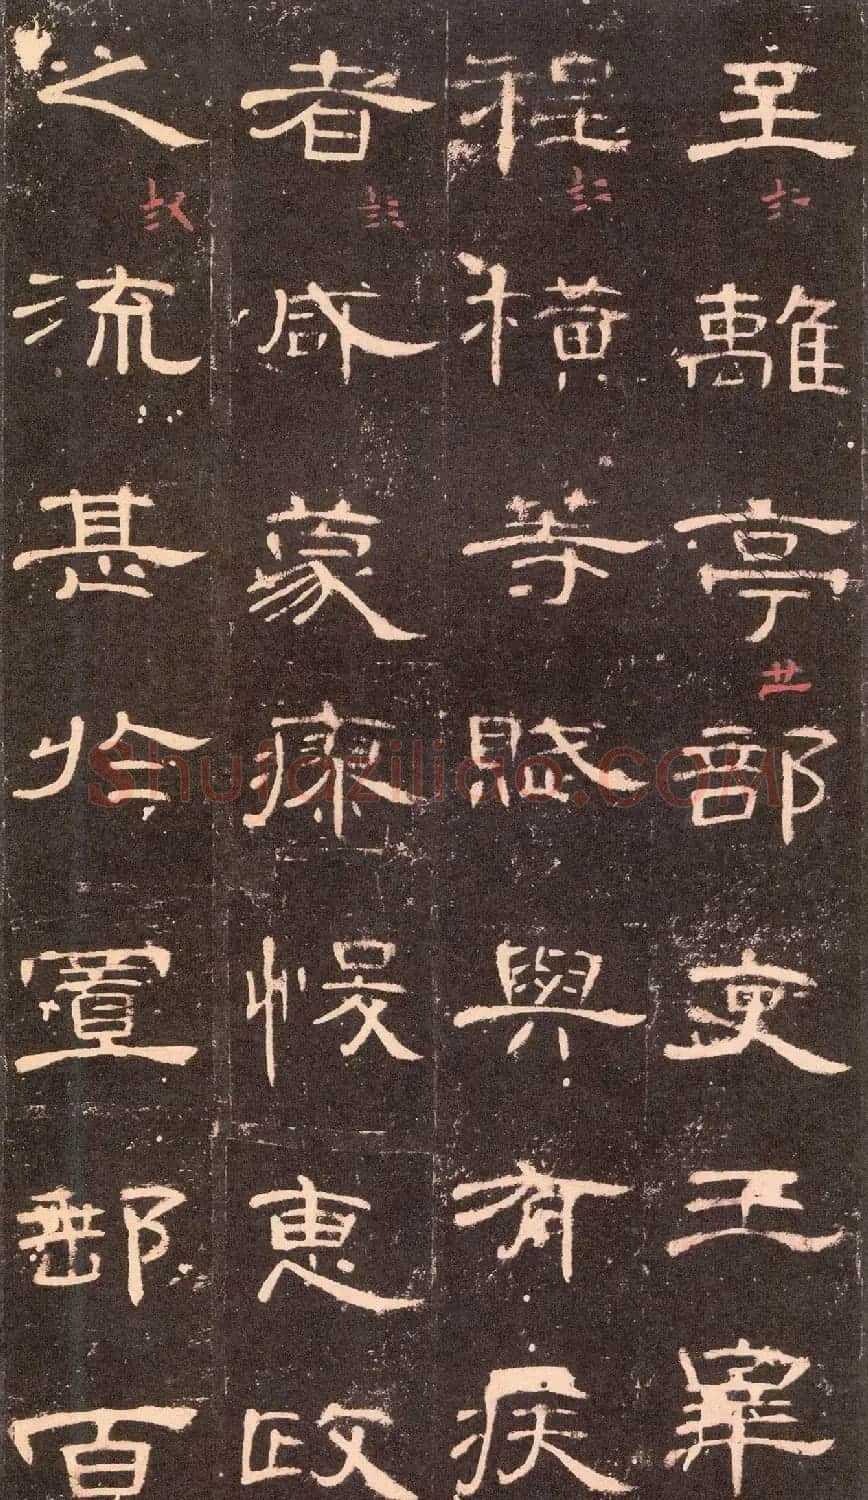 至離亭部吏王宰
程橫等賦與有疾
者咸蒙瘳悛惠政
之流甚於置郵百
shufaziliao.COM